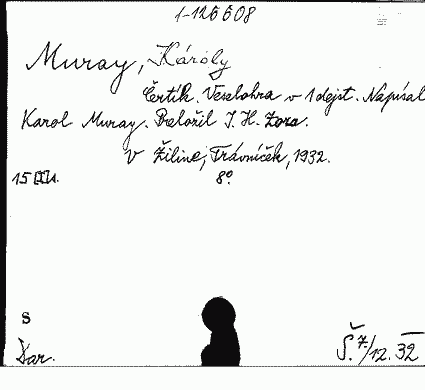 1-126608
Muray, Károly
Čertík. Veselohra v 1 dejst. Napísal
Karol Muray. Preložil J. H. Zora.
V Žiline, Trávníček, 1932.
15 8°.
S
Dar. Š. 7./12. 32